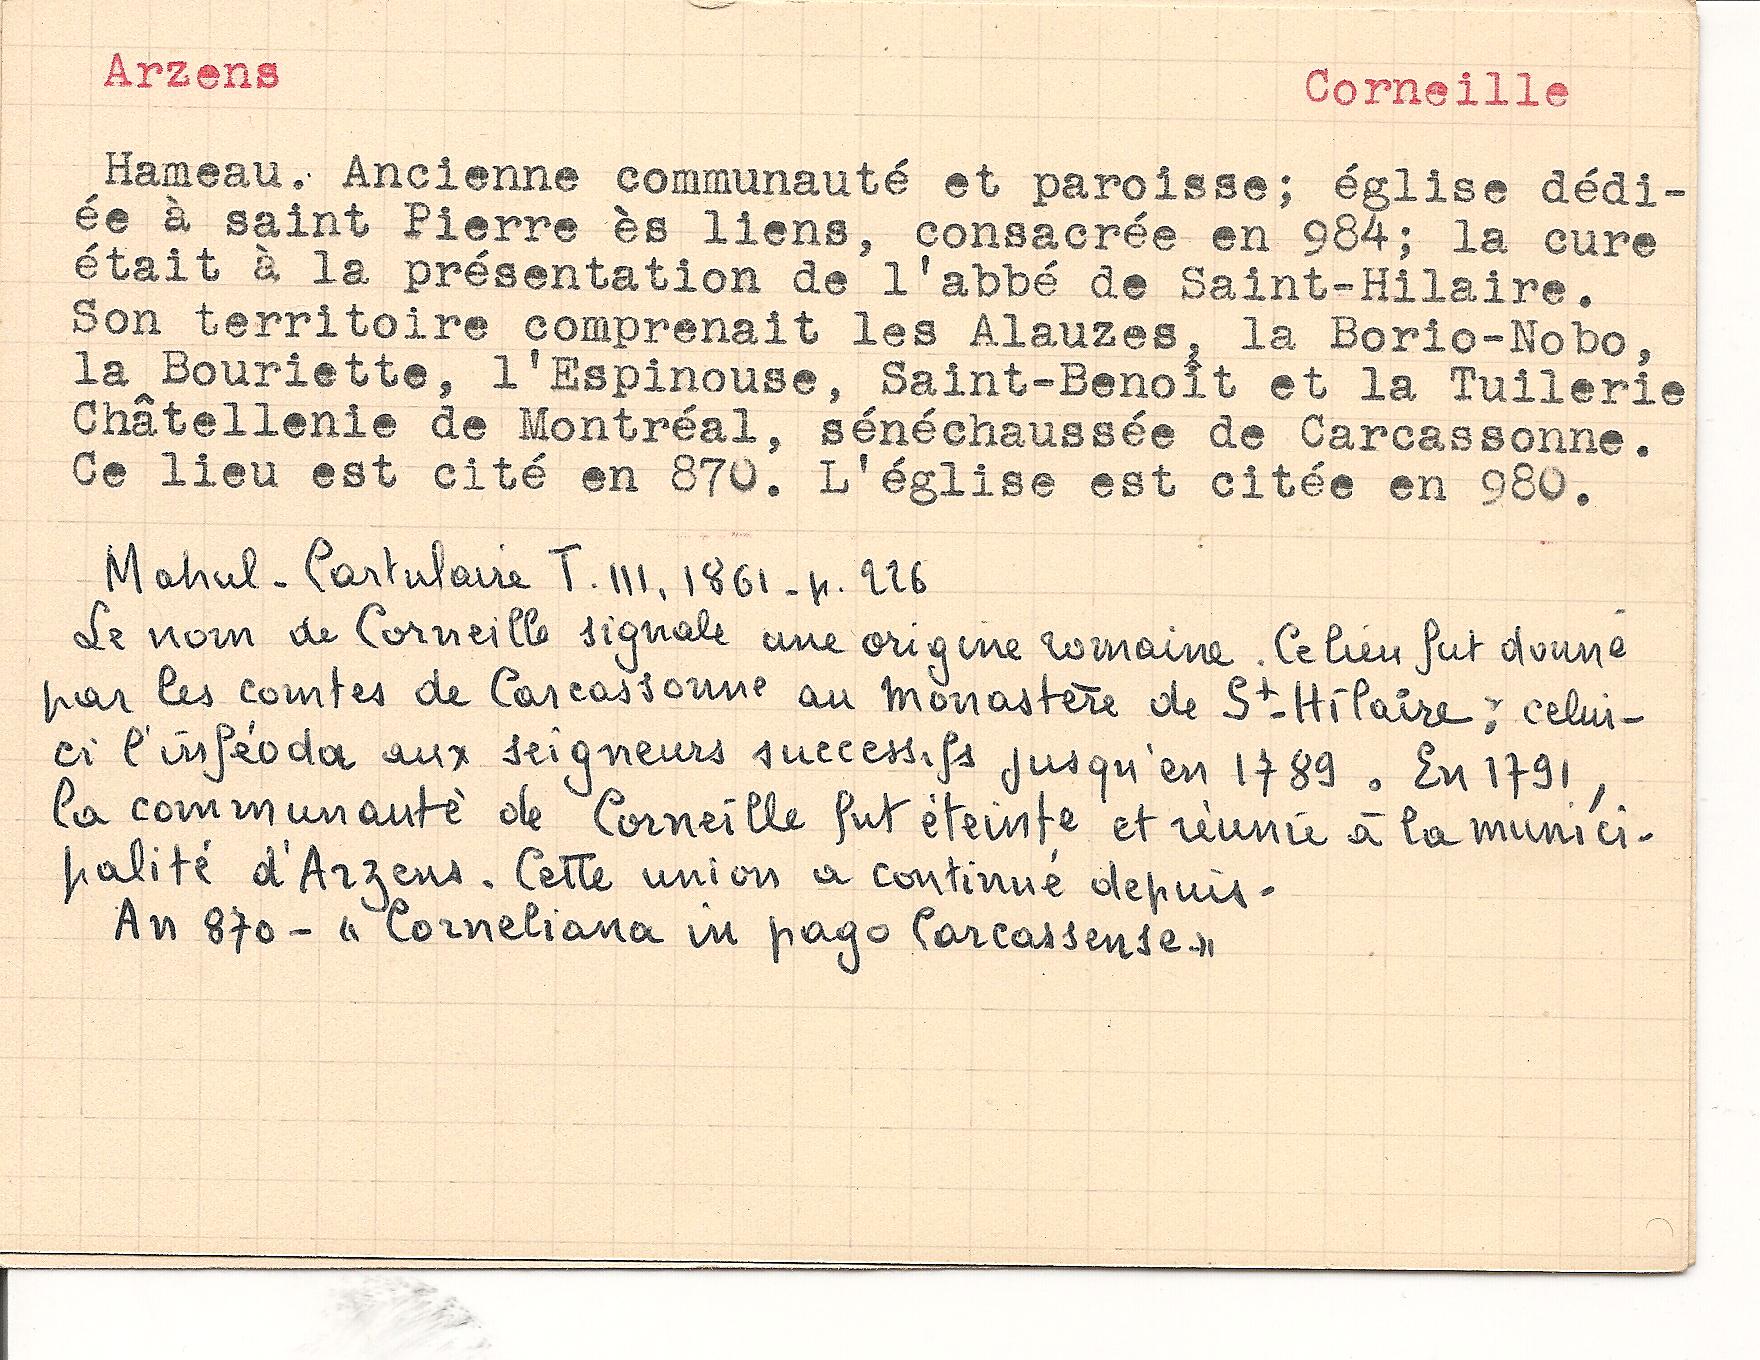 Arzens Corneille
Hameau. Ancienne communauté et paroisse; église dédi-
ée à saint Pierre ès liens, consacrée en 984; la cure
était à la présentation de l'abbé de Saint-Hilaire.
Son territoire comprenait les Alauzes, la Borio-Nobo,
la Bouriette, l'Espinouse, Saint-Benoît et la Tuilerie
Châtellenie de Montréal, sénéchaussée de Carcassonne.
Ce lieu est cité en 870. L'église est citée en 980.
Mahul - Cartulaire T. III, 1861 - p. 226
Le nom de Corneille signale une origine romaine. Ce lieu fut donné
par les comtes de Carcassonne au monastère de St-Hilaire; celui-
ci l'inféoda aux seigneurs successifs jusqu'en 1789. En 1791,
la communauté de Corneille fut éteinte et réunie à la munici-
palité d'Arzens. Cette union a continué depuis.
An 870 - "Corneliana in pago Carcassense."